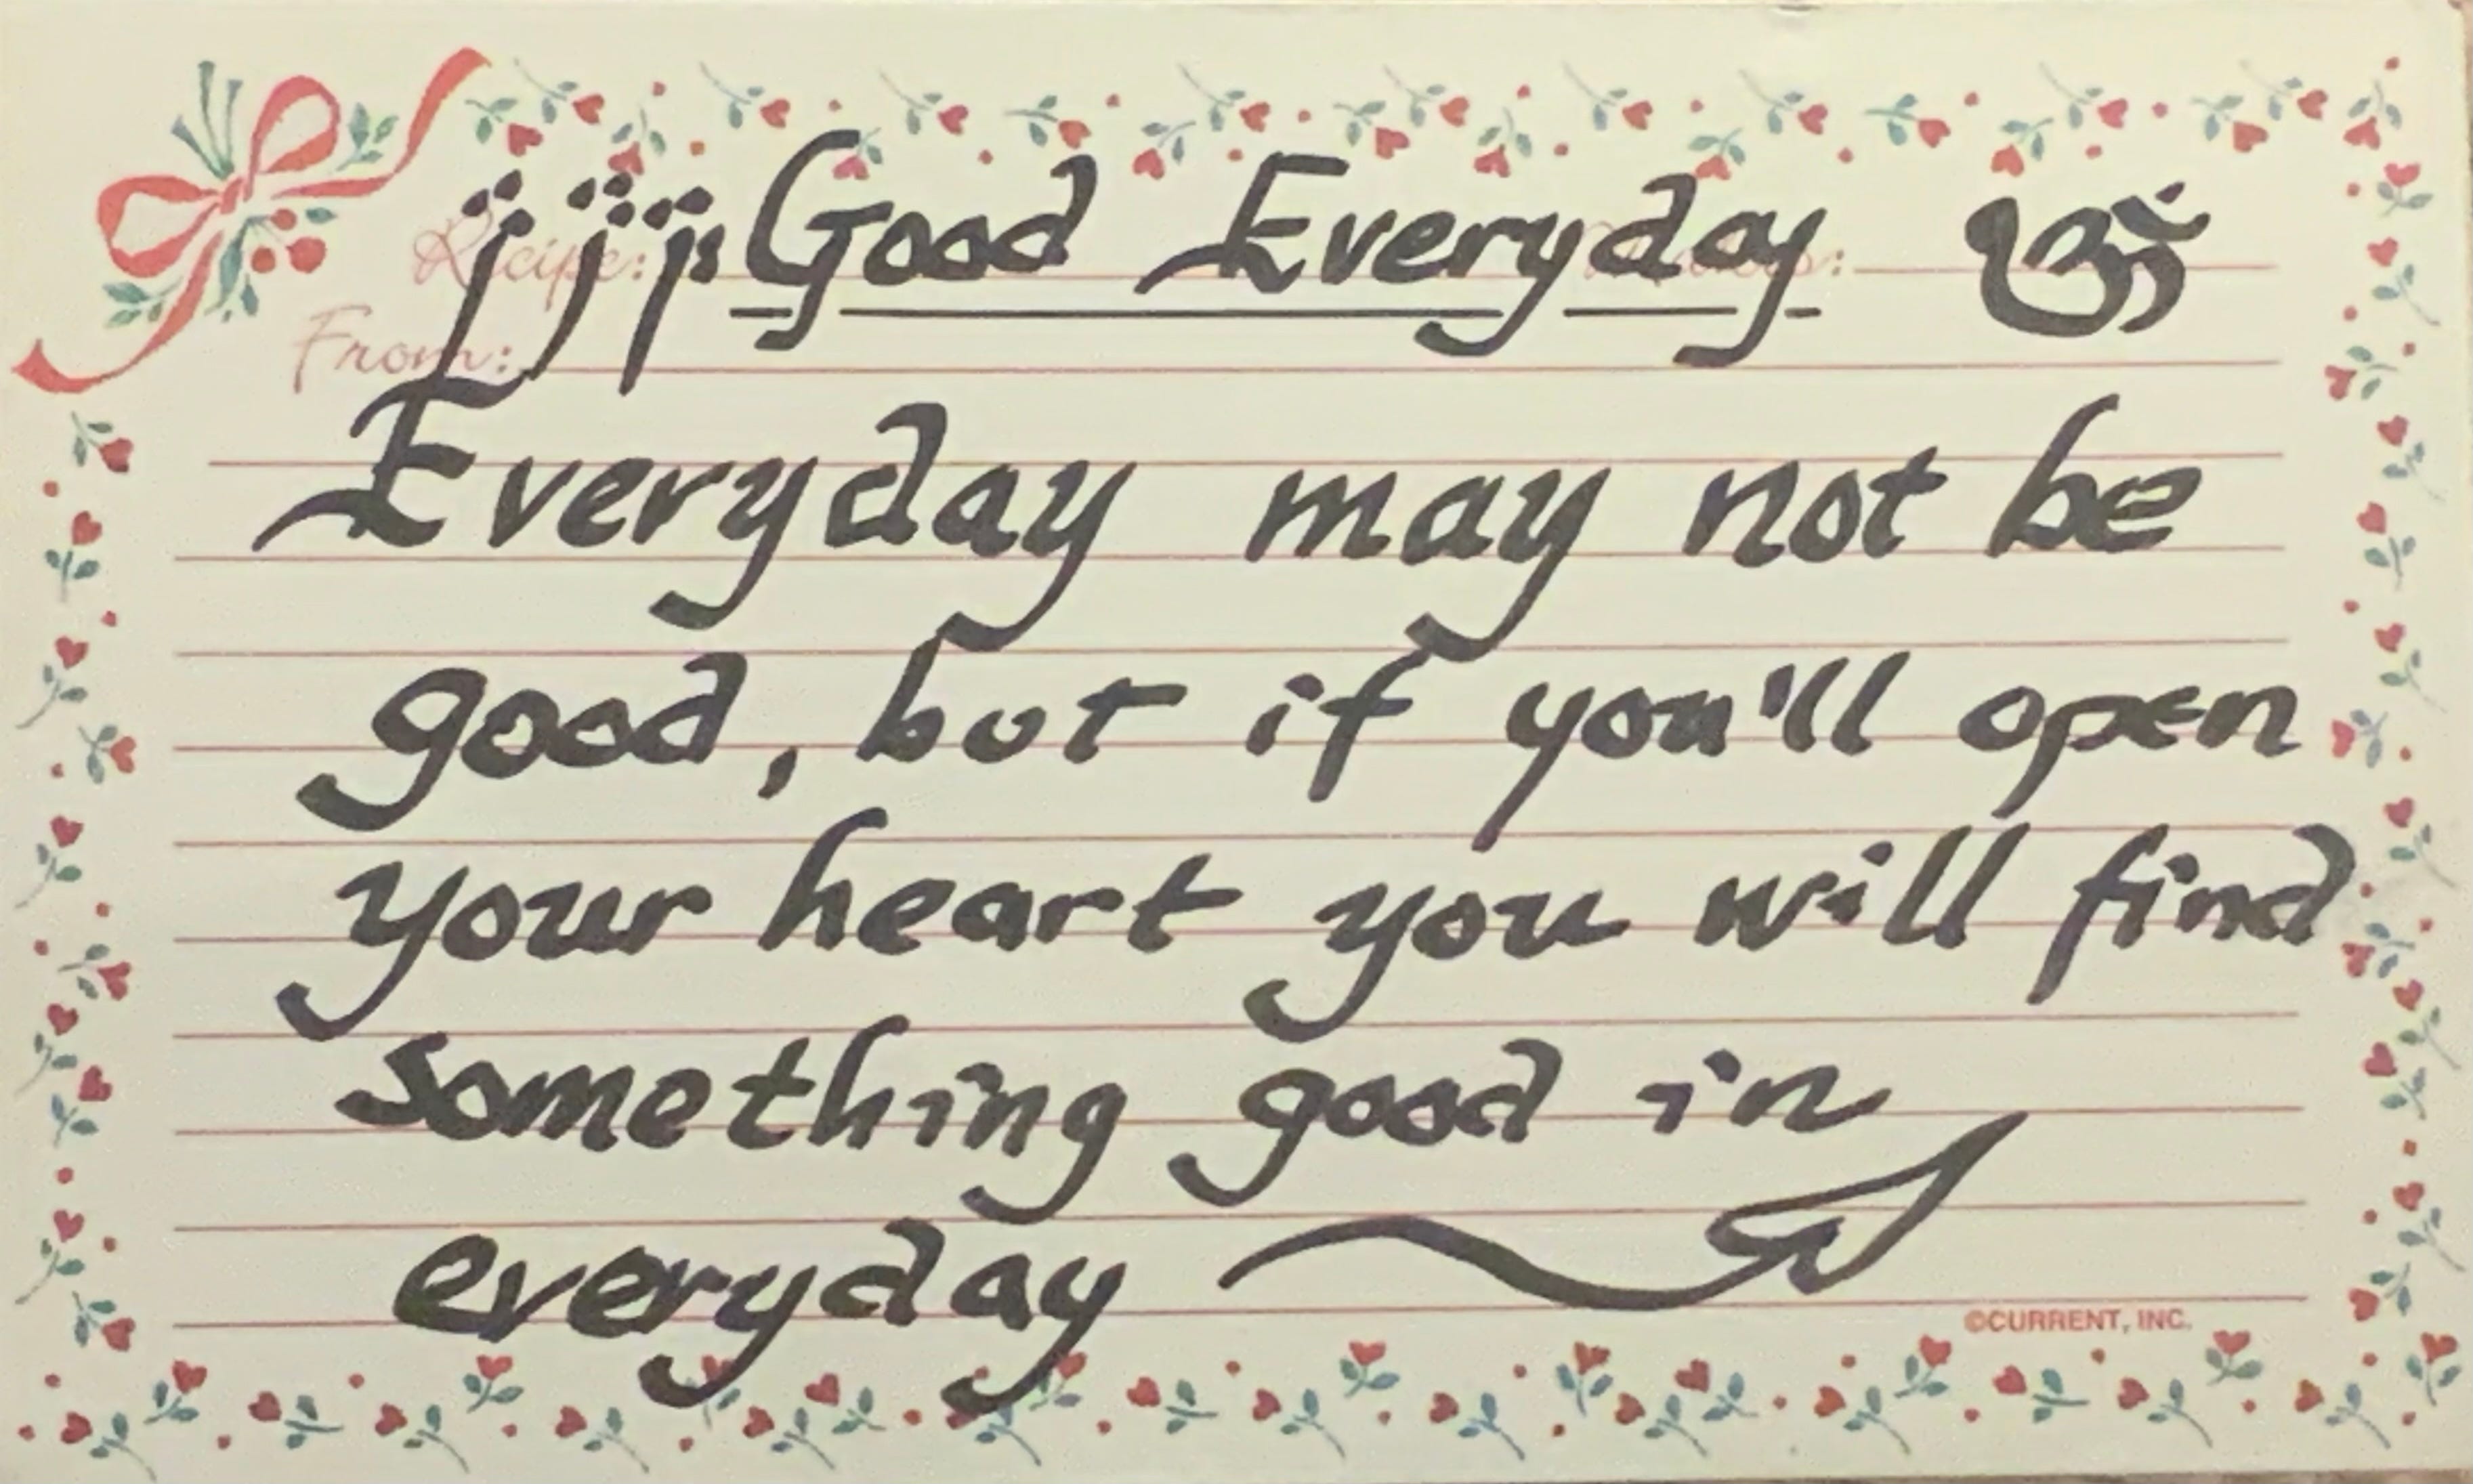 Recipe: Good Everyday ॐ
From:
Everyday may not be
good, but if you'll open
your heart you will find
something good in
everyday
©CURRENT, INC.